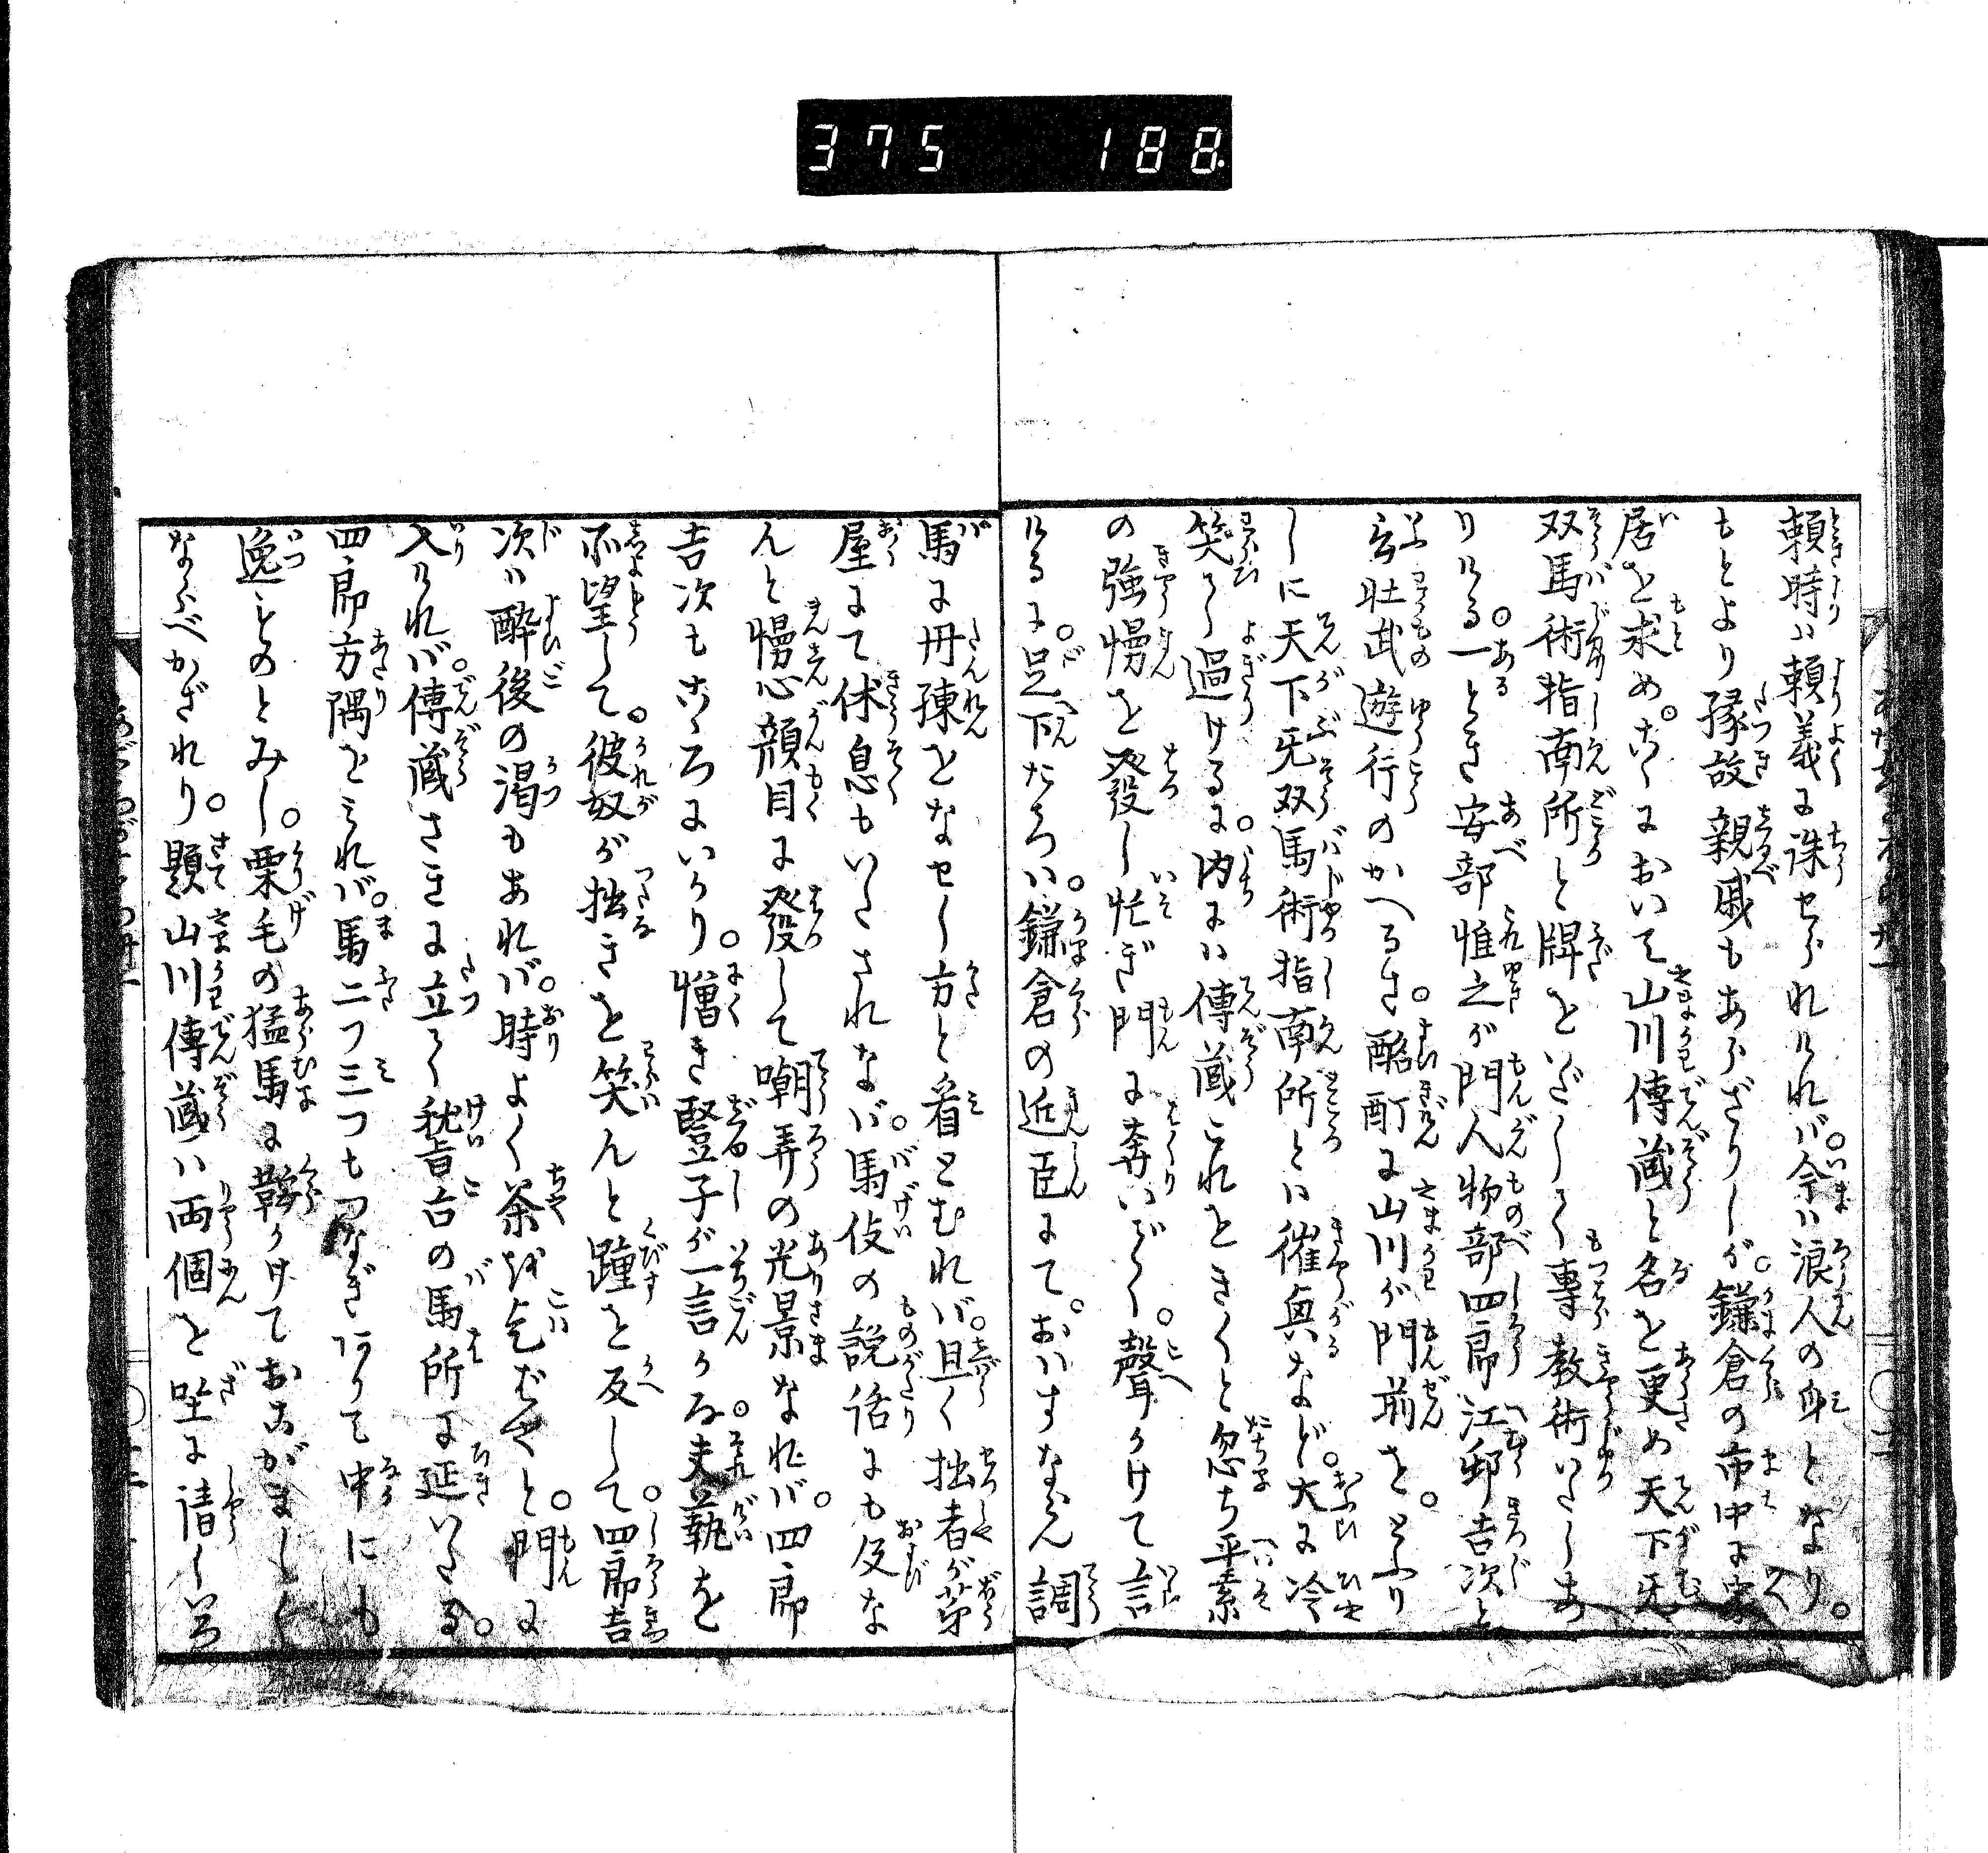 375 188.
頼時ハ頼義に誅せられければ。今ハ浪人の身となり。
もとより縁故親戚もあらざりしが。鎌倉の市中に家
居を求め。こゝにおいて山川傳蔵と名を更め天下无
双馬術指南所と牌をいだして専教術いたしあ
りける。一とき安部惟之が門人物部四郎江郷吉次と
云壮武遊行のかへるさ。酩酊に山川が門前を。とふり
しに天下无双馬術指南所とハ催奥など。大に冷
笑て過けるに。内にハ傳蔵これをきくと忽ち平素
の強慢を發し忙ぎ門に奔いで。聲かけて言
けるに。足下たちハ。鎌倉の近臣にて。おハすなん調
馬に丹練をなせし方と看とむれば。且く拙者が茅
屋にて休息もいたされなば。馬伎の説話にも及な
んと慢心顔目に發して嘲弄の光景なれば。四郎
吉次もこゝろにいかり。憎き豎子が一言かな。夫藝を
所望して。彼奴が拙きを笑んと踵を反して。四郎吉
次ハ酔後の渇もあれば。時よく茶を乞ばやと。門に
入ければ。傳蔵さきに立て稽古の馬所に延いたる。
四郎方隅をみれば。馬二つ三つもつなぎありて中にも
逸ものとみし。栗毛の猛馬に鞍かけておこがましく
ならべかざれり。顕山川傳蔵ハ両個を坐に請しいろ